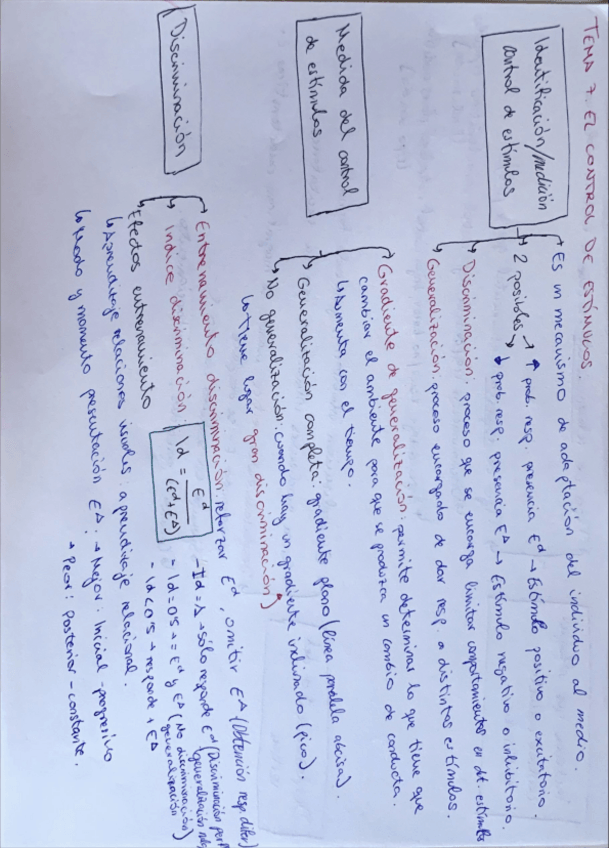 TEMA 7. EL CONTROL DE ESTÍMULOS.
Identificación/medición
control de estímulos
Es un mecanismo de adaptación del individuo al medio.
2 posibles → ↑ prob. resp. presencia Eᵈ → Estímulo positivo o excitatorio.
↓ prob. resp. presencia E^Δ → Estímulo negativo o inhibitorio.
Discriminación: proceso que se encarga limitar comportamientos en dt. estímulos
Generalización: proceso encargado de dar resp. a distintos estímulos.
Medida del control
de estímulos
Gradiente de generalización: permite determinar lo que tiene que
cambiar el ambiente para que se produzca un cambio de conducta.
↳ Aumenta con el tiempo.
Generalización completa: gradiente plano (línea paralela abscisa).
No generalización: cuando hay un gradiente inclinado (pico).
↳ Tiene lugar gran discriminación
Discriminación
Entrenamiento discriminación: reforzar Eᵈ, omitir E^Δ (Obtención resp. difer.)
Índice discriminación Id = Eᵈ / (Eᵈ + E^Δ)
- Id = 1 → sólo responde Eᵈ (Discriminación perf.
generalización nula)
- Id = 0'5 → = Eᵈ y E^Δ (No discriminación)
generalización
- Id < 0'5 → responde + E^Δ
Efectos entrenamiento
↳ Aprendizaje relaciones iguales: aprendizaje relacional.
↳ Modo y momento presentación E^Δ: → Mejor: Inicial - progresivo
→ Peor: Posterior - constante.